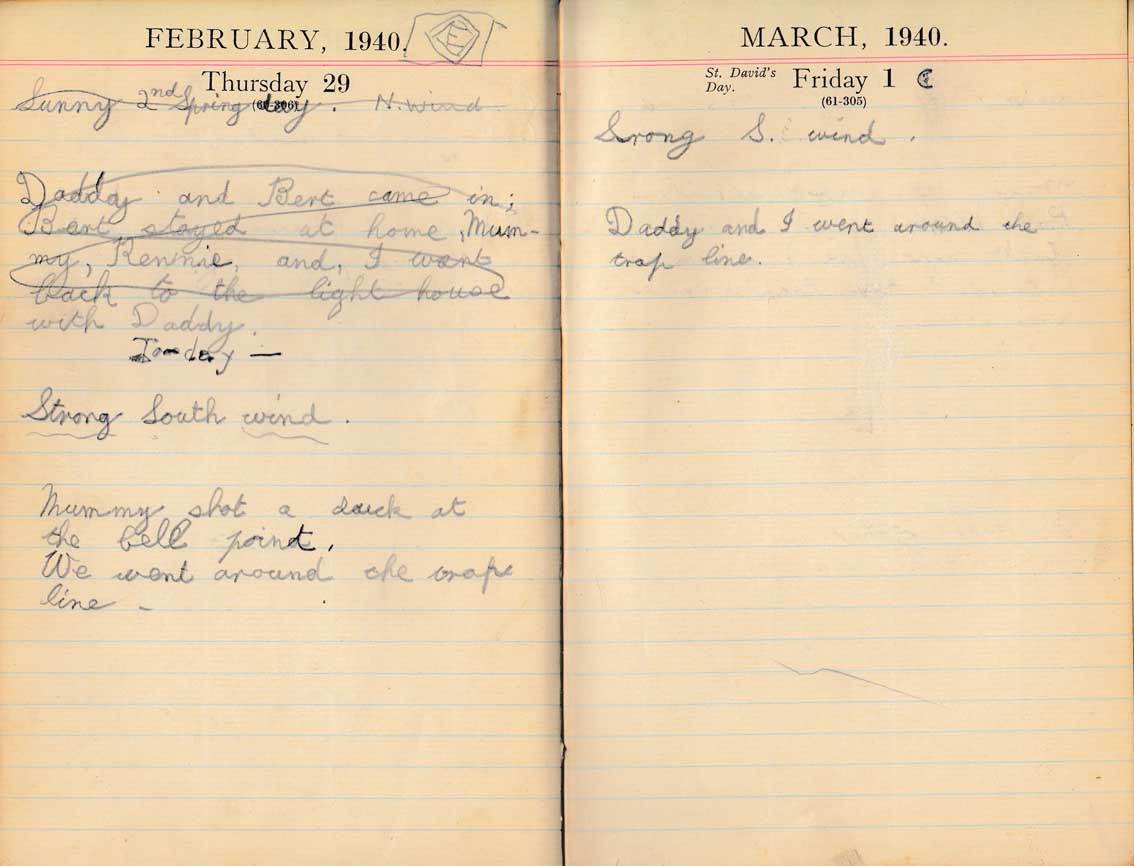 FEBRUARY, 1940.
E
Thursday 29
(60-306)
Sunny 2nd Spring day. N. wind
Daddy and Bert came in;
Bert stayed at home, Mum-
my, Rennie, and, I went
back to the light house
with Daddy.
To-day —
Strong South wind.
Mummy shot a duck at
the bell point.
We went around the trap
line -
MARCH, 1940.
St. David's Day.
Friday 1
(61-305)
Srong S. wind.
Daddy and I went around the
trap line.